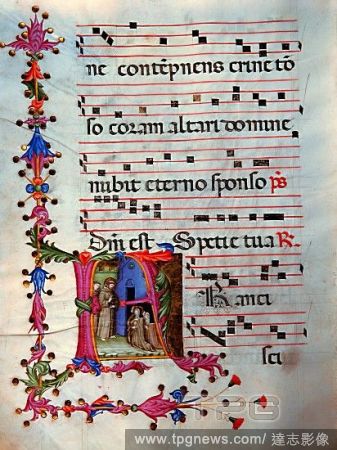 ne contēpnens crine tō
so coram altari domine
nubit eterno sponso p̄s
Dn̄i est Spetie tua R
ranci
sci
TPG
www.tpgnews.com/ 達志影像